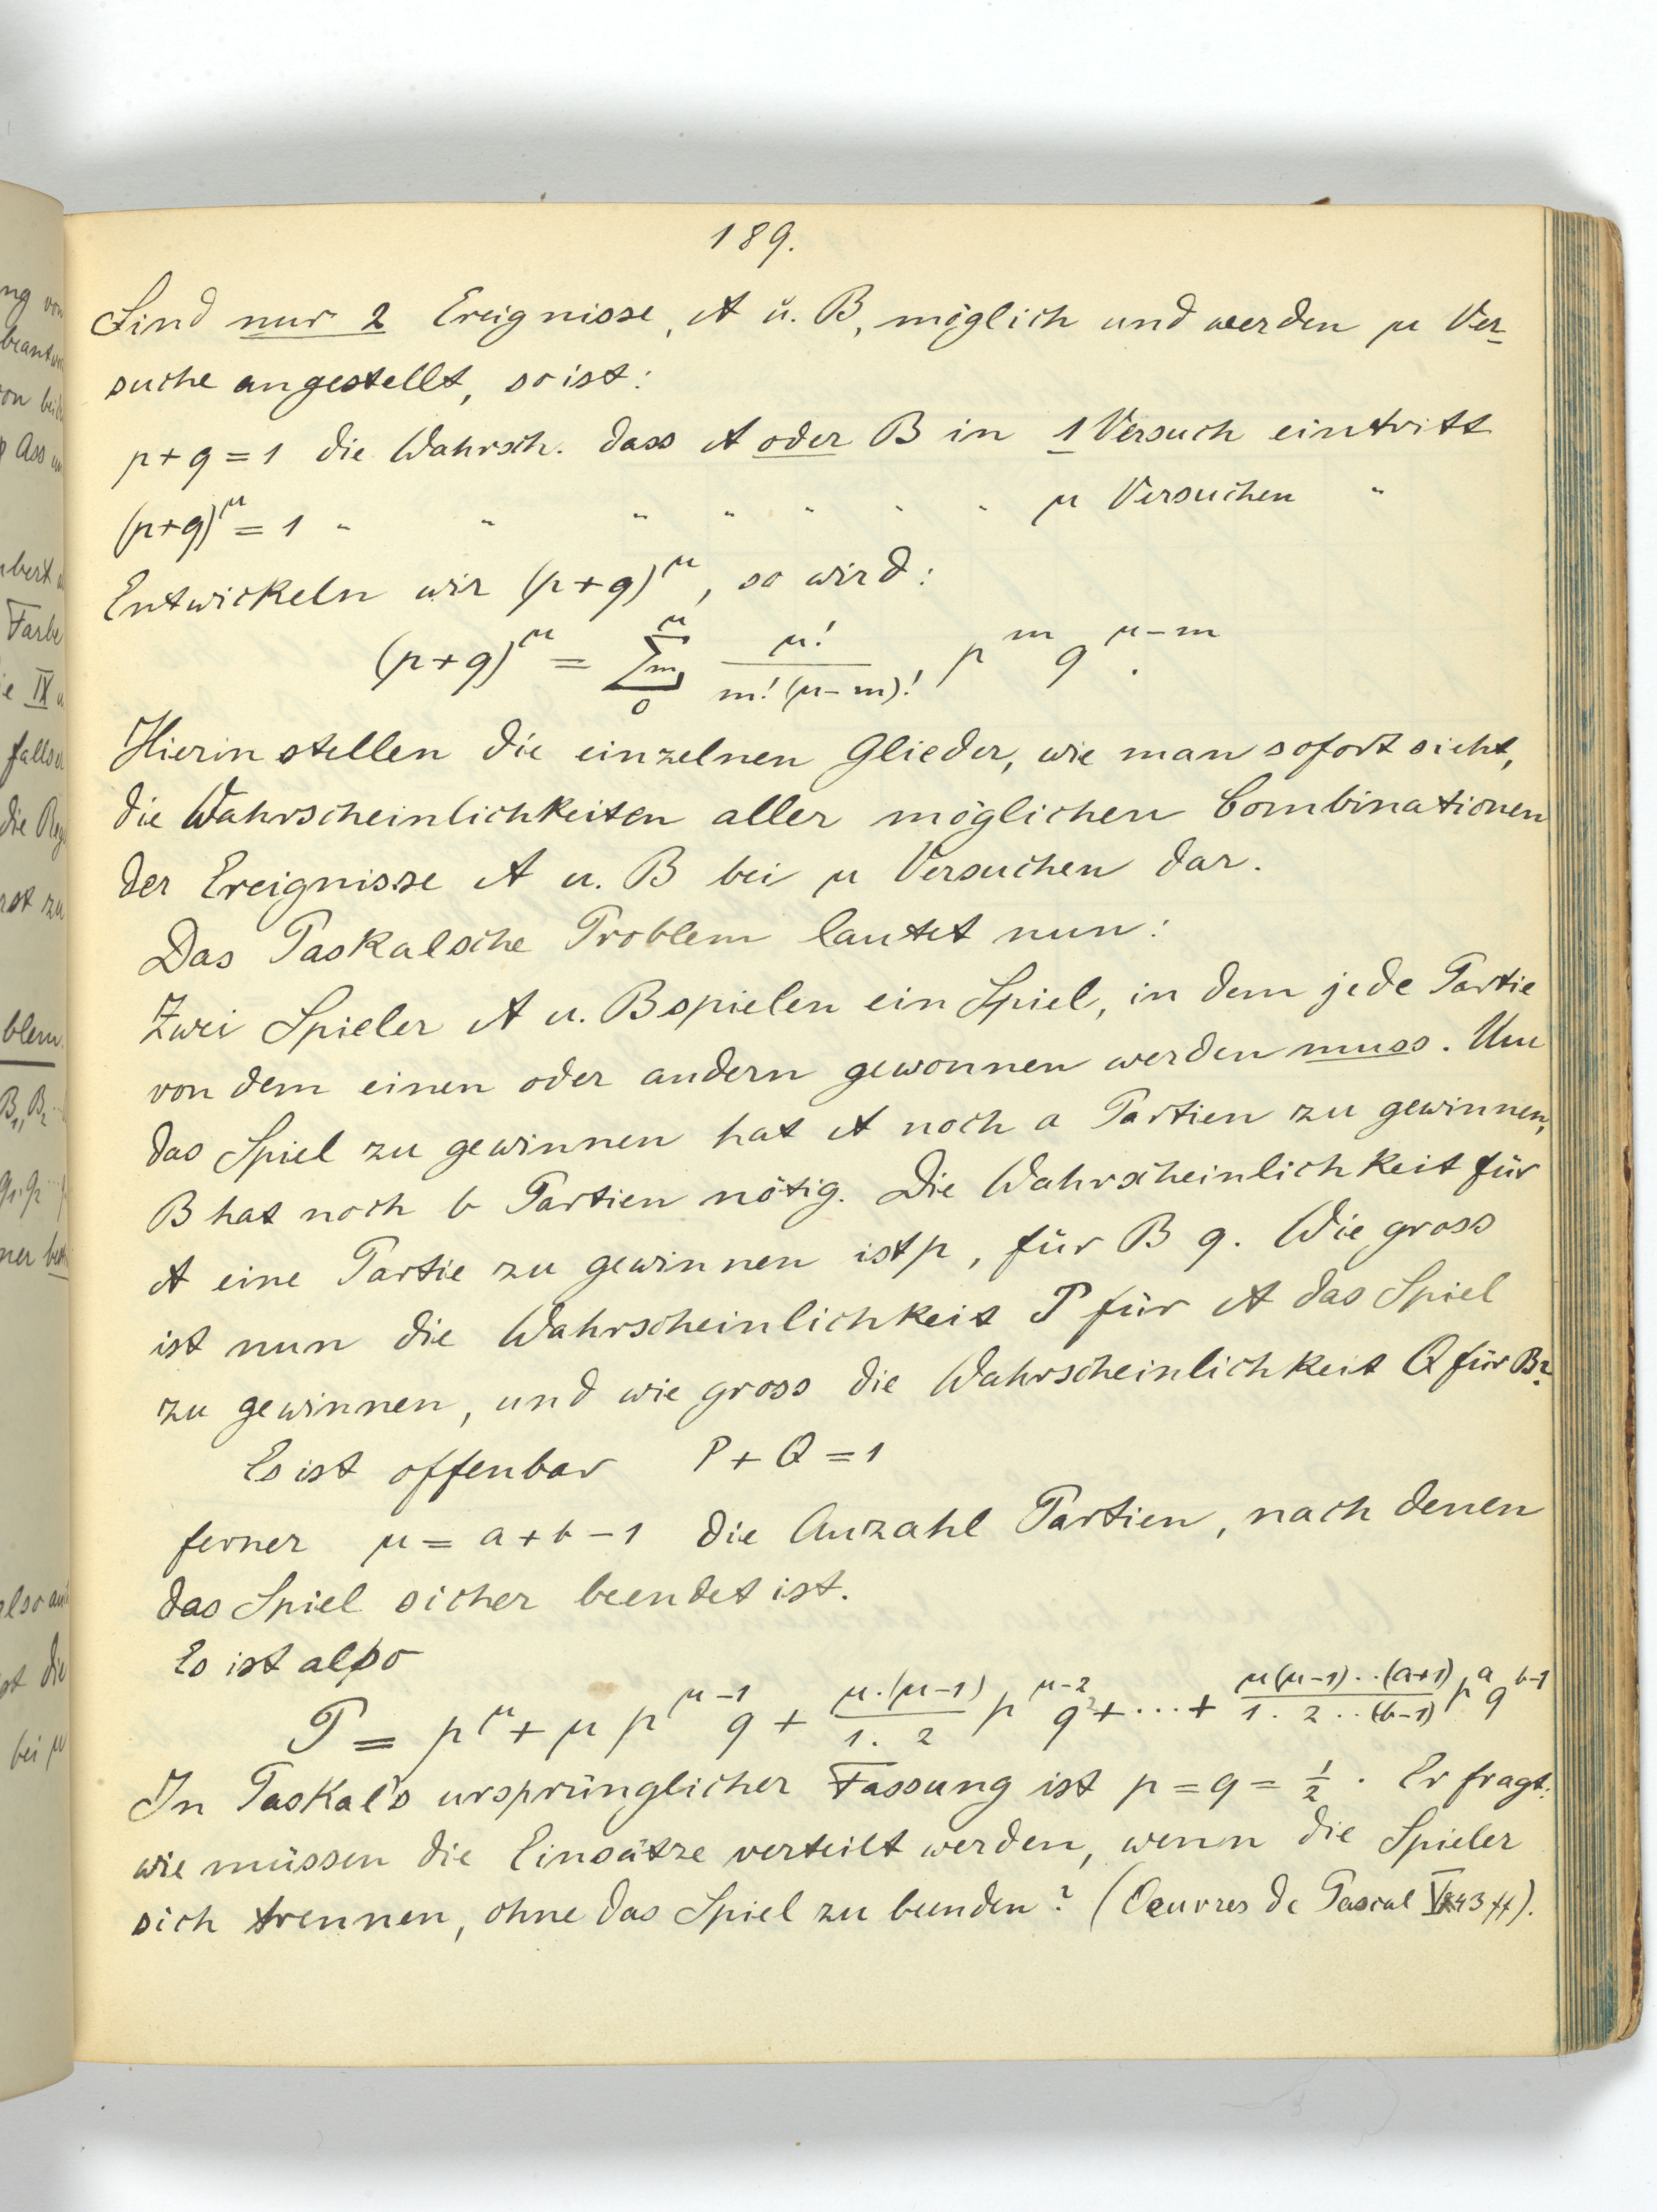 189.
Sind nur 2 Ereignisse, A u. B, möglich und werden μ Ver-
suche angestellt, so ist:
p+q = 1 die Wahrsch. dass A oder B in 1 Versuch eintritt
(p+q)^μ = 1 " " " " " " " μ Versuchen "
Entwickeln wir (p+q)^μ, so wird:
(p+q)^μ = Σ_m_0^μ μ!/(m!(μ-m)!) p^m q^(μ-m).
Hierin stellen die einzelnen Glieder, wie man sofort sieht,
die Wahrscheinlichkeiten aller möglichen Combinationen
der Ereignisse A u. B bei μ Versuchen dar.
Das Paskalsche Problem lautet nun:
Zwei Spieler A u. B spielen ein Spiel, in dem jede Partie
von dem einen oder andern gewonnen werden muss. Um
das Spiel zu gewinnen hat A noch a Partien zu gewinnen,
B hat noch b Partien nötig. Die Wahrscheinlichkeit für
A eine Partie zu gewinnen ist p, für B q. Wie gross
ist nun die Wahrscheinlichkeit P für A das Spiel
zu gewinnen, und wie gross die Wahrscheinlichkeit Q für B?
Es ist offenbar P + Q = 1
ferner μ = a+b-1 die Anzahl Partien, nach denen
das Spiel sicher beendet ist.
Es ist also
P = p^μ + μ p^(μ-1) q + μ.(μ-1)/1. 2 p^(μ-2) q^2 + ··· + μ(μ-1)··(a+1)/1. 2 ··(b-1) p^a q^(b-1)
In Paskal's ursprünglicher Fassung ist p = q = 1/2. Er fragt:
wie müssen die Einsätze verteilt werden, wenn die Spieler
sich trennen, ohne das Spiel zu beenden? (Oeuvres de Pascal 43 ff).